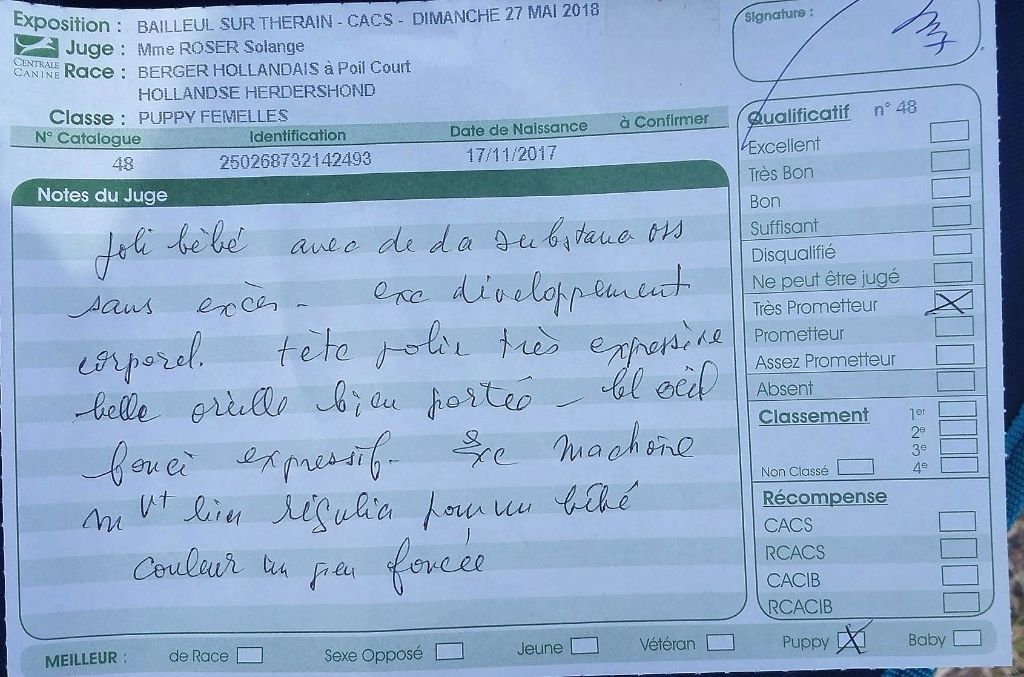 Exposition : BAILLEUL SUR THERAIN - CACS - DIMANCHE 27 MAI 2018
Juge : Mme ROSER Solange
CENTRALE CANINE
Race : BERGER HOLLANDAIS à Poil Court
HOLLANDSE HERDERSHOND
Classe : PUPPY FEMELLES
N° Catalogue Identification Date de Naissance à Confirmer
48 250268732142493 17/11/2017
Notes du Juge
Joli bébé avec de da substance oss
sans excès - exc développement
corporel. tête jolie très expressive
belle oreille bien portée - bel oeil
foncé expressif - Exc machoire
mvt bien régulier pour un bébé
couleur un peu foncée
Signature :
Qualificatif n° 48
Excellent
Très Bon
Bon
Suffisant
Disqualifié
Ne peut être jugé
Très Prometteur X
Prometteur
Assez Prometteur
Absent
Classement 1er
2e
3e
Non Classé 4e
Récompense
CACS
RCACS
CACIB
RCACIB
MEILLEUR : de Race Sexe Opposé Jeune Vétéran Puppy X Baby